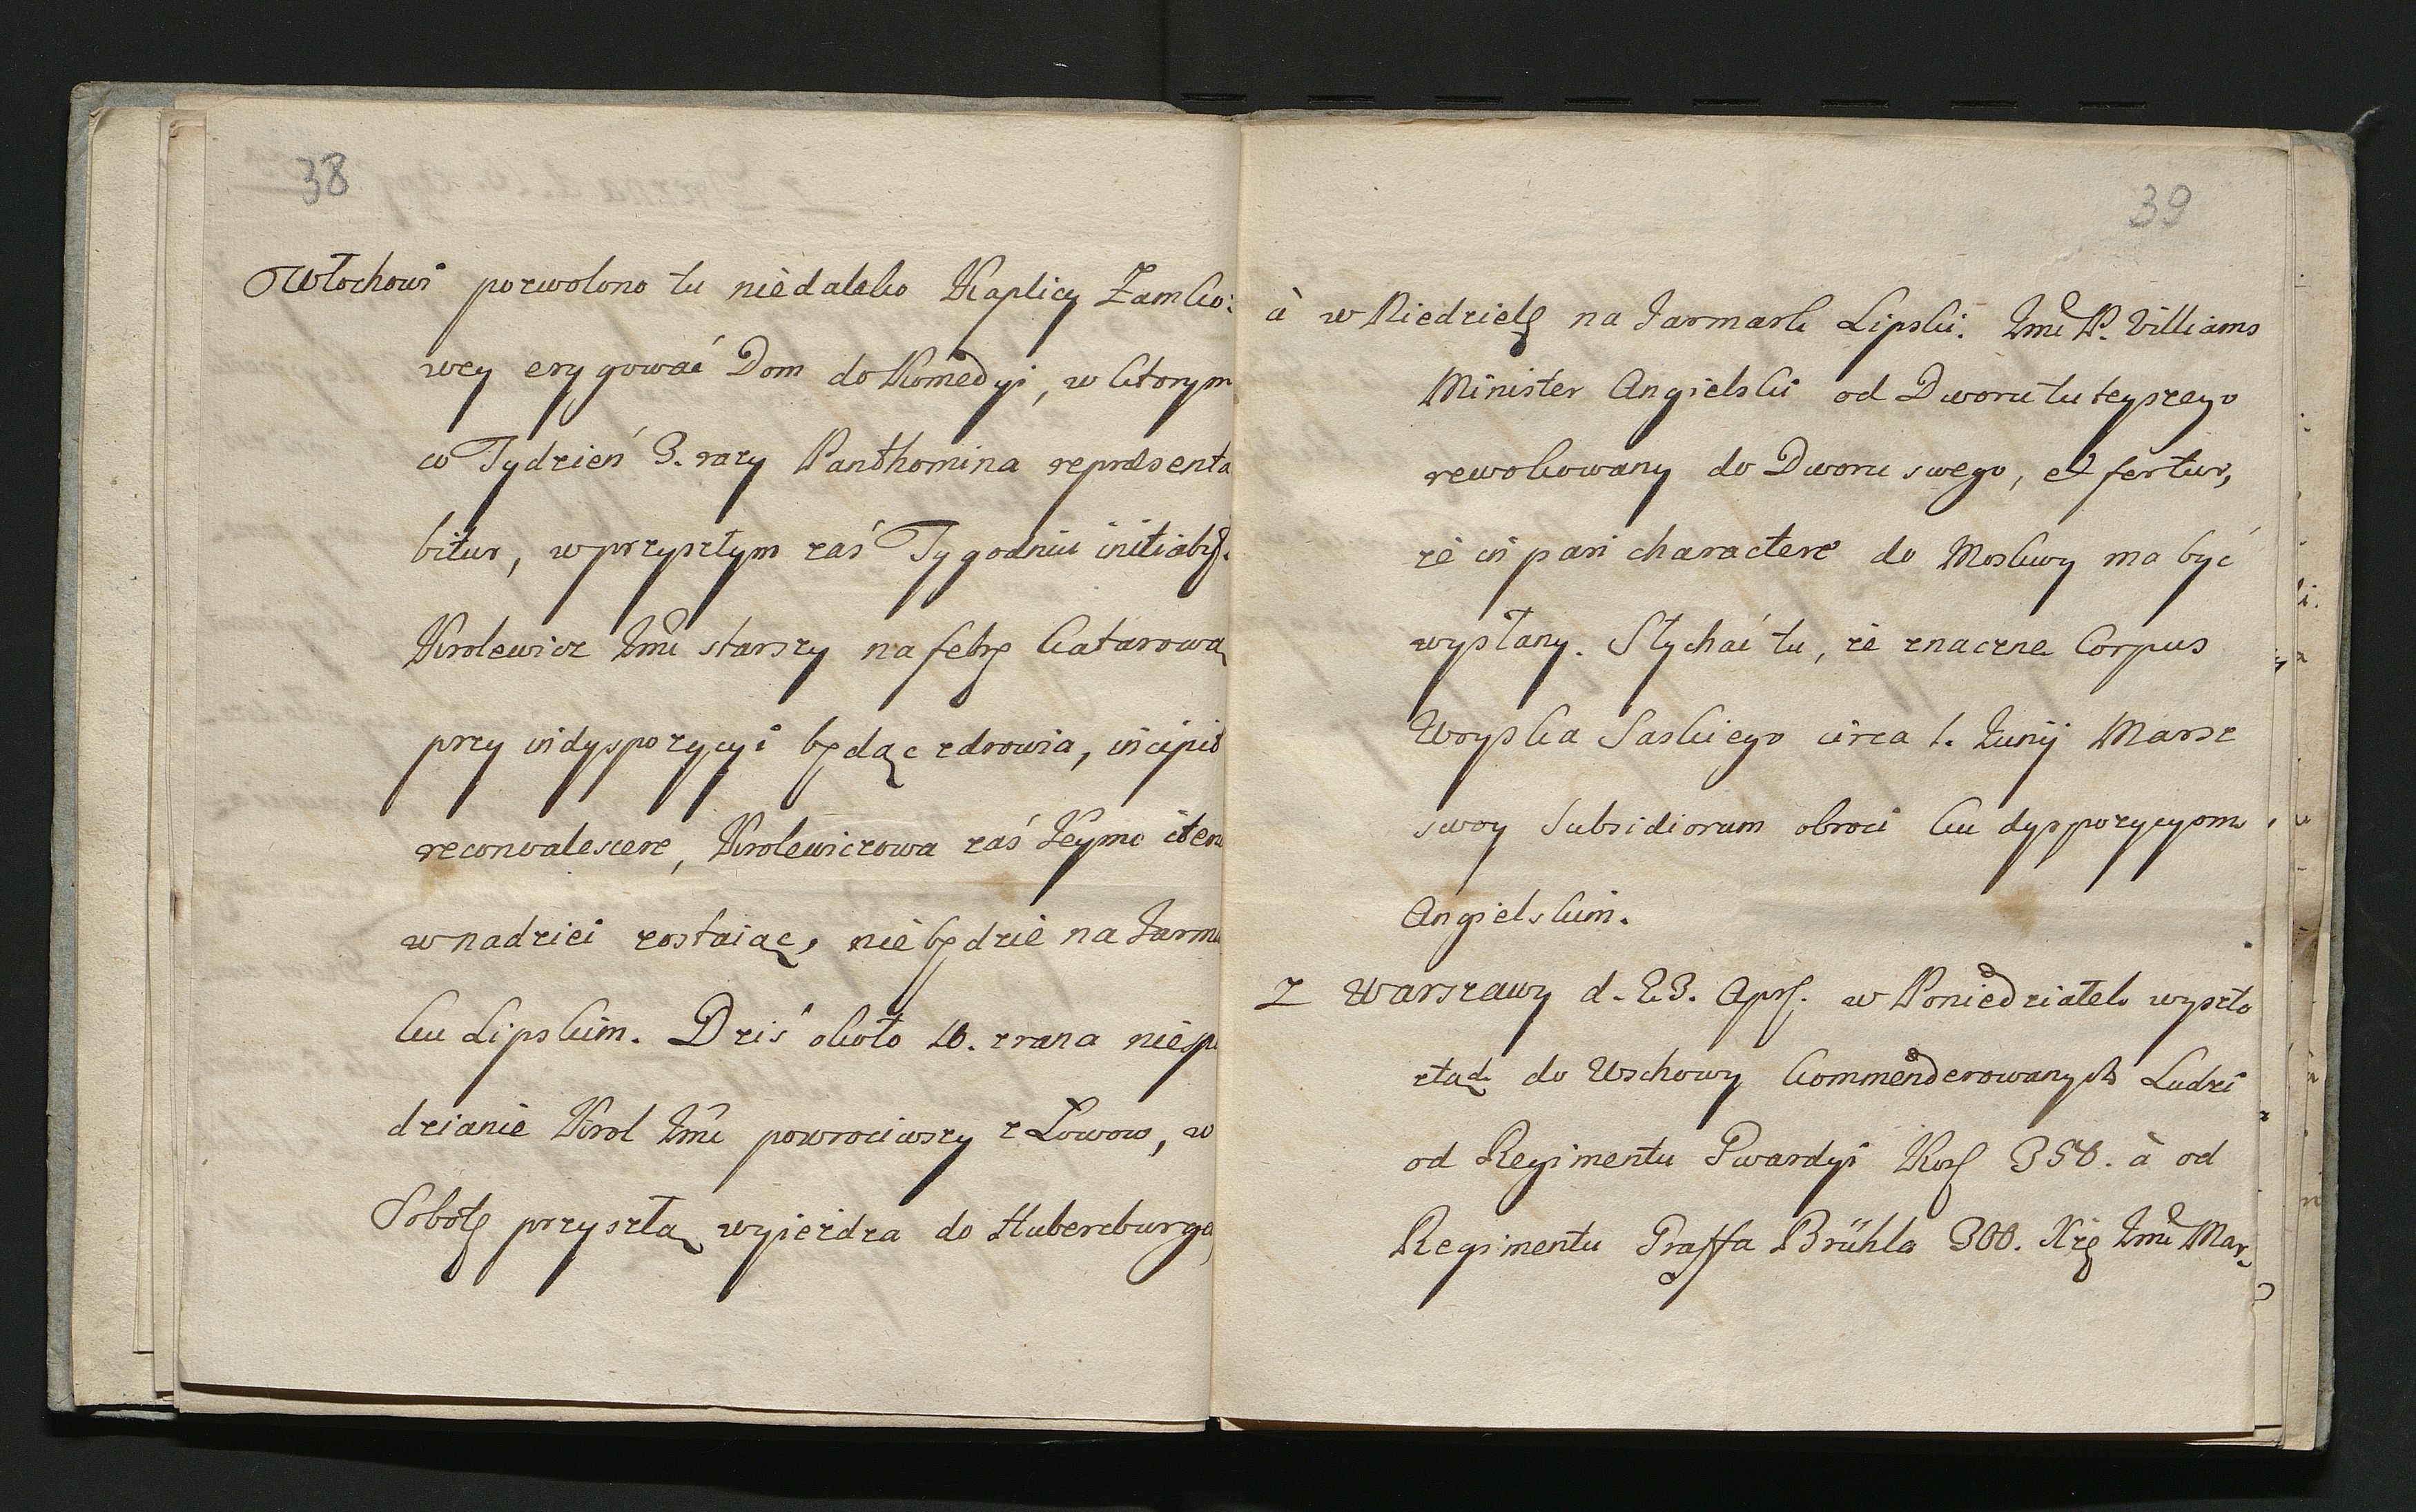 38
Włochowi pozwolono tu niedaleko Kaplicy Zamko:
wey erygować Dom do Komedyi, w ktorym
co Tydzień 3. razy Panthomina repræsenta
bitur, w przyszłym zaś Tygodniu initiabr.
Krolewicz Jmć starszy na febrę Katarową
przy indyspozycyi będąc zdrowia, incipit
reconvalescere, Krolewiczowa zaś Jeymc item
w nadziei zostaiąc, nie będzie na Jarm
ku Lipskim. Dziś około 10. zrana niesp
dzianie Krol Jmć powrociwszy z Łowow, w
Sobotę przyszłą wyieżdza do Huberzburga,
39
à w Niedzielę na Jarmark Lipski. Jmć P. Villiams
Minister Angielski od Dworu tuteyszego
rewokowany do Dworu swego, et fertur,
że in pari charactere do Moskwy ma być
wysłany. Słychać tu, że znaczne Corpus
Woyska Saskiego circa 1. Junij Marsz
swoy Subsidiorum obroci ku dyspozycyom
Angielskim.
Z Warszawy d. 23. Apr. w Poniedziałek wyszło
ztąd do Wschowy kommenderowanych Ludzi
od Regimentu Gwardyi Kor 350. à od
Regimentu Graffa Brühla 300. Xżę Jmć Mar-